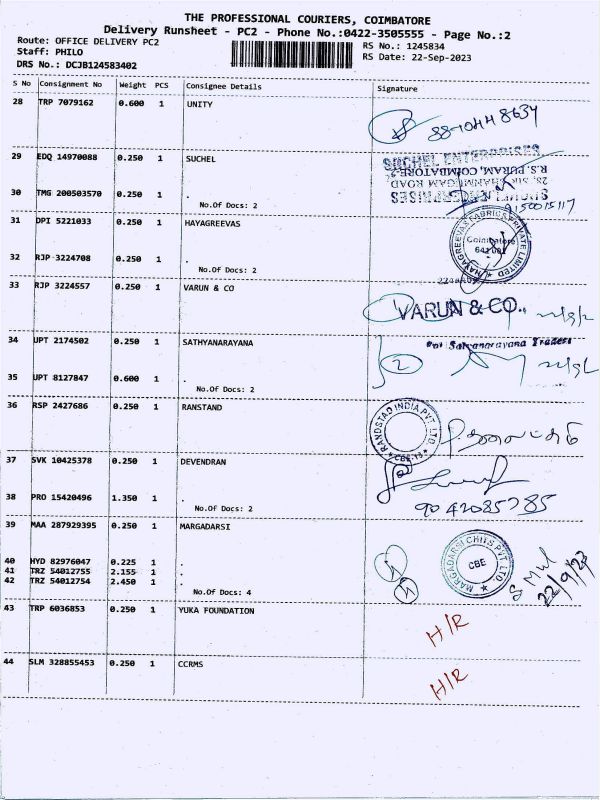 THE PROFESSIONAL COURIERS, COIMBATORE
Delivery Runsheet - PC2 - Phone No.:0422-3505555 - Page No.:2
Route: OFFICE DELIVERY PC2
RS No.: 1245834
Staff: PHILO
RS Date: 22-Sep-2023
DRS No.: DCJB124583402
S No Consignment No Weight PCS Consignee Details Signature
28 TRP 7079162 0.600 1 UNITY
29 EDQ 14970088 0.250 1 SUCHEL
SUCHEL ENTERPRISES
R.S.PURAM, COIMBATORE-2
30 TMG 200503570 0.250 1 .
No.Of Docs: 2
9150015117
31 DPI 5221033 0.250 1 HAYAGREEVAS
HAYAGREEVAS FABRICS PRIVATE LIMITED
Coimbatore
641 001
32 RJP 3224708 0.250 1 .
No.Of Docs: 2
33 RJP 3224557 0.250 1 VARUN & CO
VARUN & CO.,
34 UPT 2174502 0.250 1 SATHYANARAYANA
For Satyanarayana Traders
2
35 UPT 8127847 0.600 1 .
No.Of Docs: 2
36 RSP 2427686 0.250 1 RANSTAND
RANDSTAD INDIA PVT LTD
37 SVK 10425378 0.250 1 DEVENDRAN
38 PRO 15420496 1.350 1 .
No.Of Docs: 2
9042085785
39 MAA 287929395 0.250 1 MARGADARSI
MARGADARSI CHITS PVT. LTD.
CBE
40 HYD 82976047 0.225 1 .
41 TRZ 54012755 2.155 1 .
42 TRZ 54012754 2.450 1 .
No.Of Docs: 4
22/9/23
43 TRP 6036853 0.250 1 YUKA FOUNDATION
H/R
44 SLM 328855453 0.250 1 CCRMS
H/R